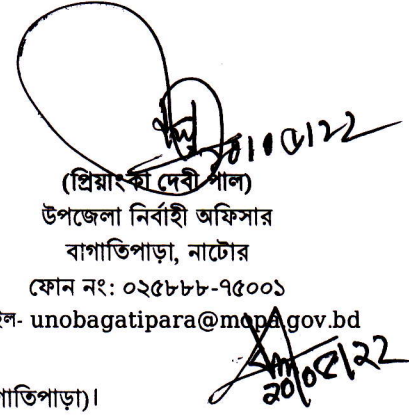 ২০।০৫।২২
(প্রিয়াংকা দেবী পাল)
উপজেলা নির্বাহী অফিসার
বাগাতিপাড়া, নাটোর
ফোন নং: ০২৫৮৮৮-৭৫০০১
ইল- unobagatipara@mopa.gov.bd
২০।০৫।২২
গাতিপাড়া)।